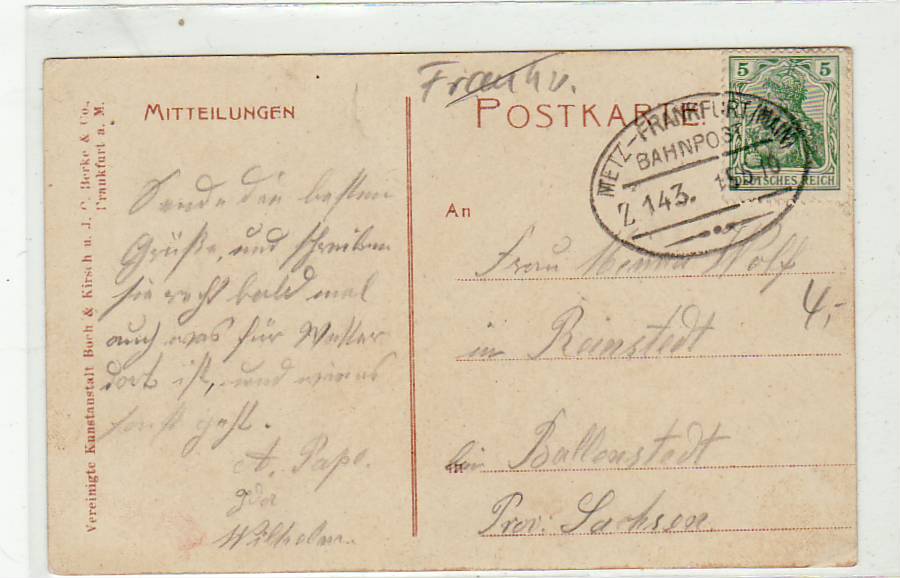 Frankfu.
MITTEILUNGEN
Sende die besten
Grüße, und schreiben
sie recht bald mal
auch was für Wetter
dort ist, und wie es
sonst geht.
A. Pape.
Ida
Wilhelm.
Vereinigte Kunstanstalt Boeh & Kirsch u. J. C. Berke & Co.,
Frankfurt a. M.
POSTKARTE.
5 5
DEUTSCHES REICH
METZ-FRANKFURT (MAIN)
BAHNPOST
Z 143. 10
An
Frau Minna Wolf
4,-
in Reinstedt
bei Ballenstedt
Prov. Sachsen